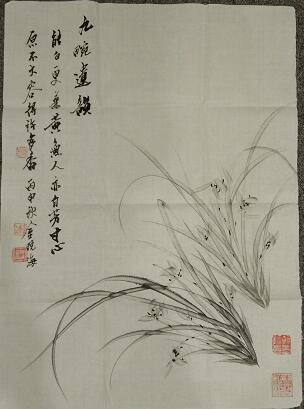 九畹遺韻
能白更兼黄無人亦自芳寸心
原不大容得許多香 丙申秋